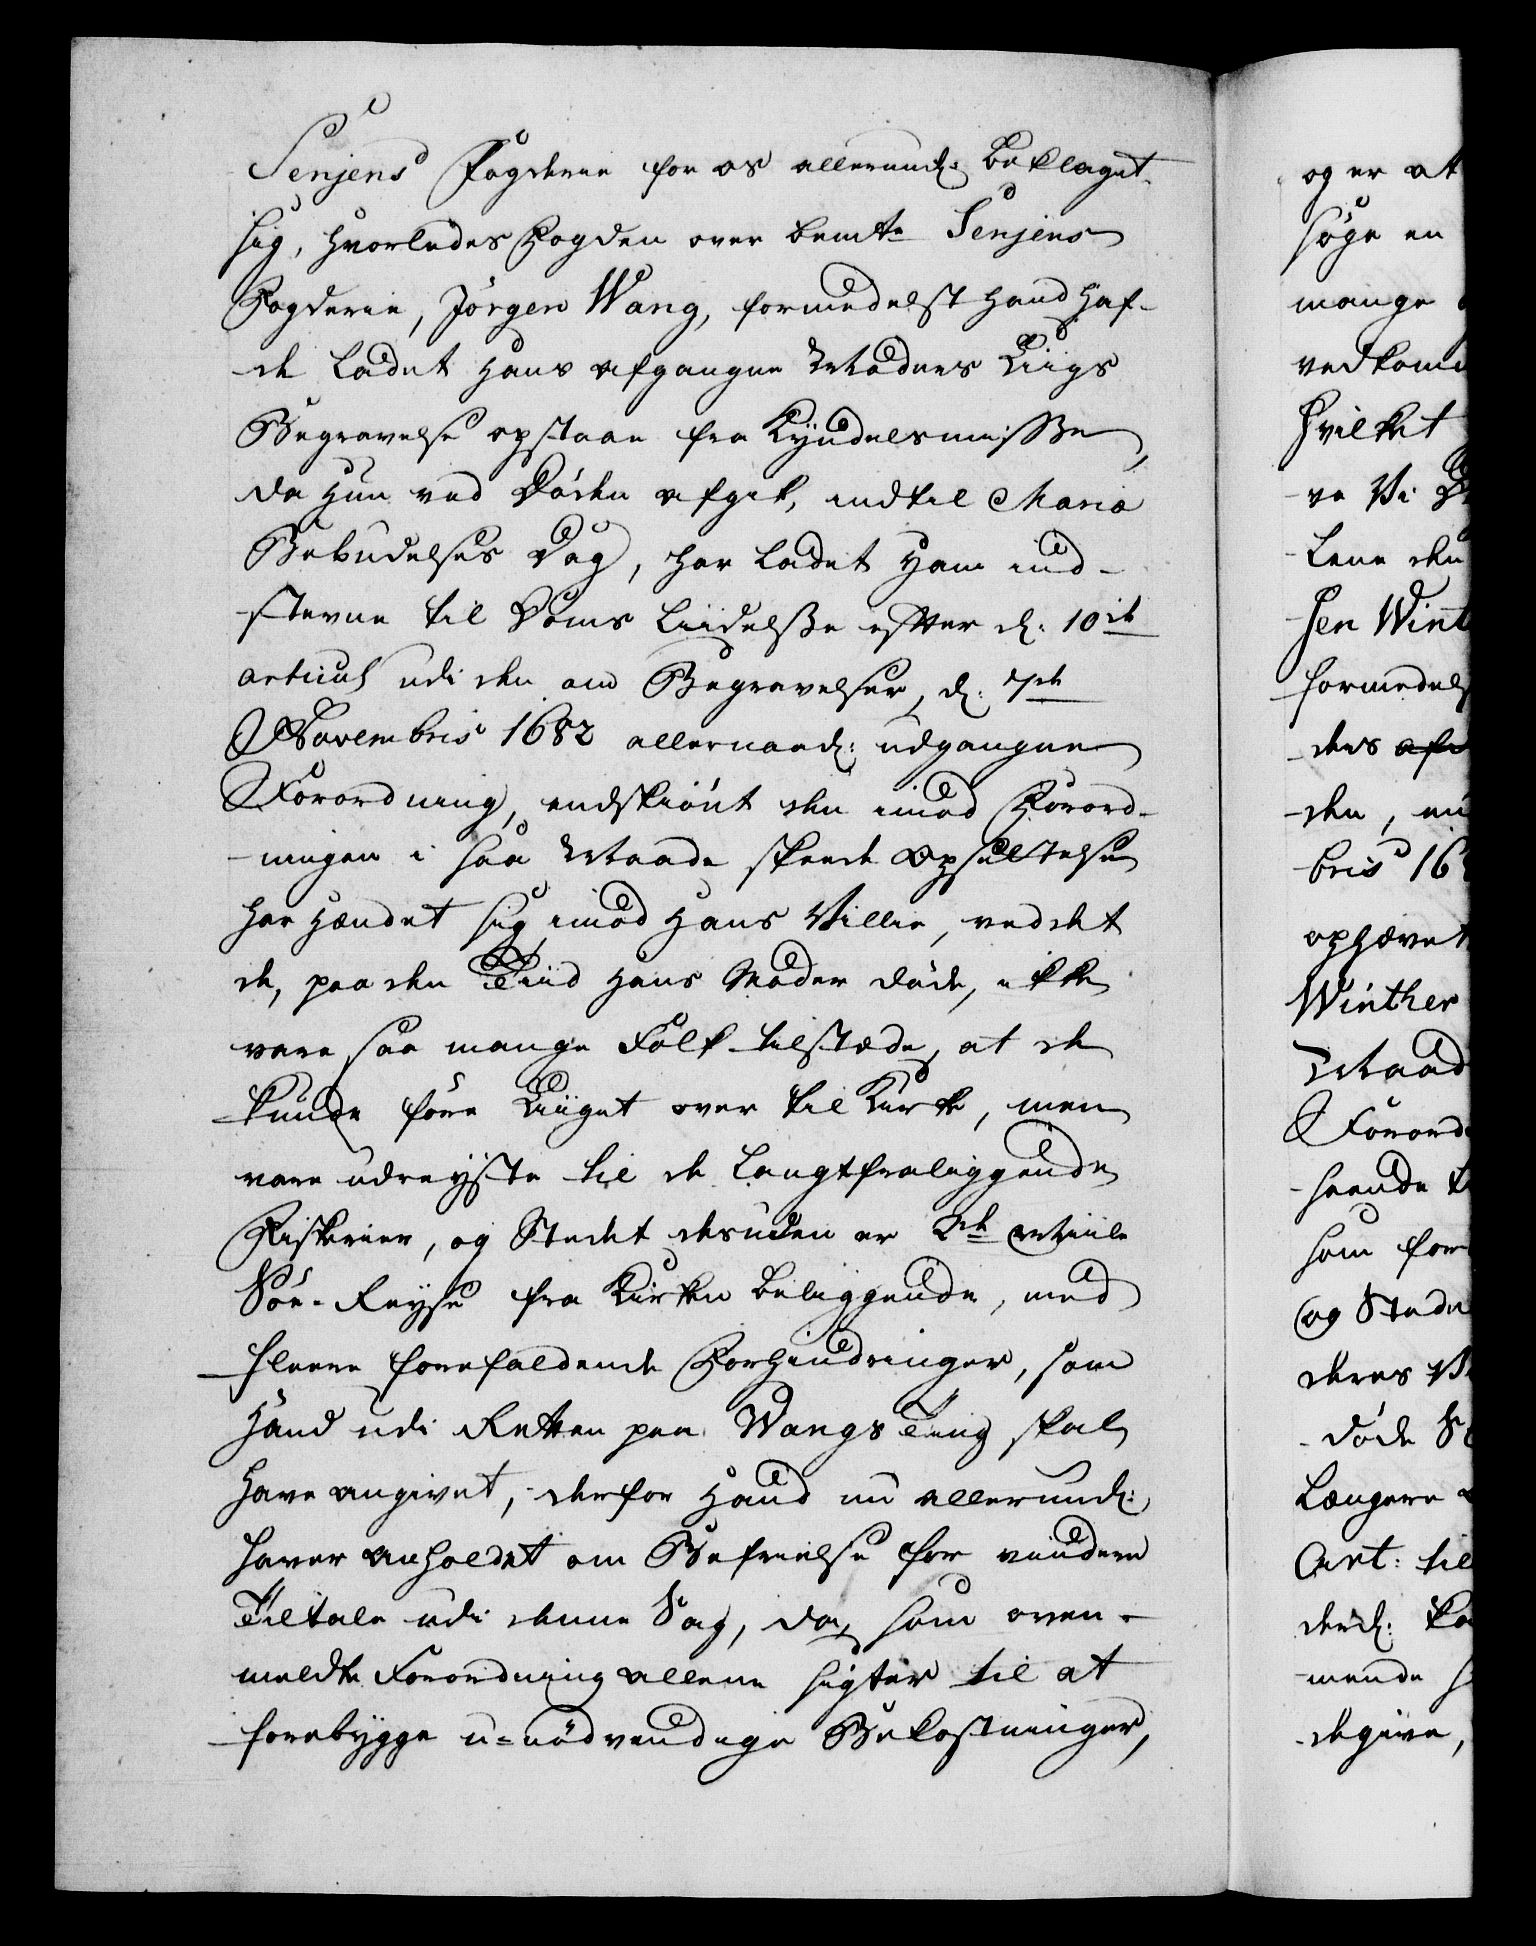 Senjens Fogderie for os allerund: beklaget
sig, hvorledes Fogden over bemte Senjens
Fogderie, Jörgen Wang, formedelst hand haf-
de ladet hans afgangne Moders Liigs
Begravelse opstaae fra Kyndelsmisse,
da hun ved Döden afgik, indtil Mariæ
Bebudelses Dag, har ladet ham ind-
stevne til Doms Liidelsse efter d: 10de
articul udi den om Begravelser, d: 7de
Novembris 1682 allernaad: udgangne
Forordning, endskiönt den imod Forord-
ningen i saa Maade skeede Opsættelse
har hændet sig imod hans Villie, ved det
de, paa den Tiid hans Moder döde, ikke
vare saa mange Folk tilstæde, at de
kunde före Liiget over til Kirke, men
vare udreyste til de langtfraliggende
Fiskerier, og Stedet desuden er 2de Miile
Söe-Reyse fra Kirken beliggende, med
fleere forefaldende Forhindringer, som
hand udi Retten paa Wangs Ting skal
have angivet, derfor hand nu allerund:
haver anholdet om Befrielse for viidere
Tiltale udi denne Sag, da, som oven-
meldte Forordning allene sigter til at
forebygge u-nödvendige Bekostninger,
og er at
söge en
mange
vedkom
hvilket
ve Vi
lene den
sen Wint
formedels
ders
den, en
bris 16
ophævet
Winther
Maad
Forord
seende
som for
og Stede
deres
döde
længere
Art: til
derd:
mende
degive,